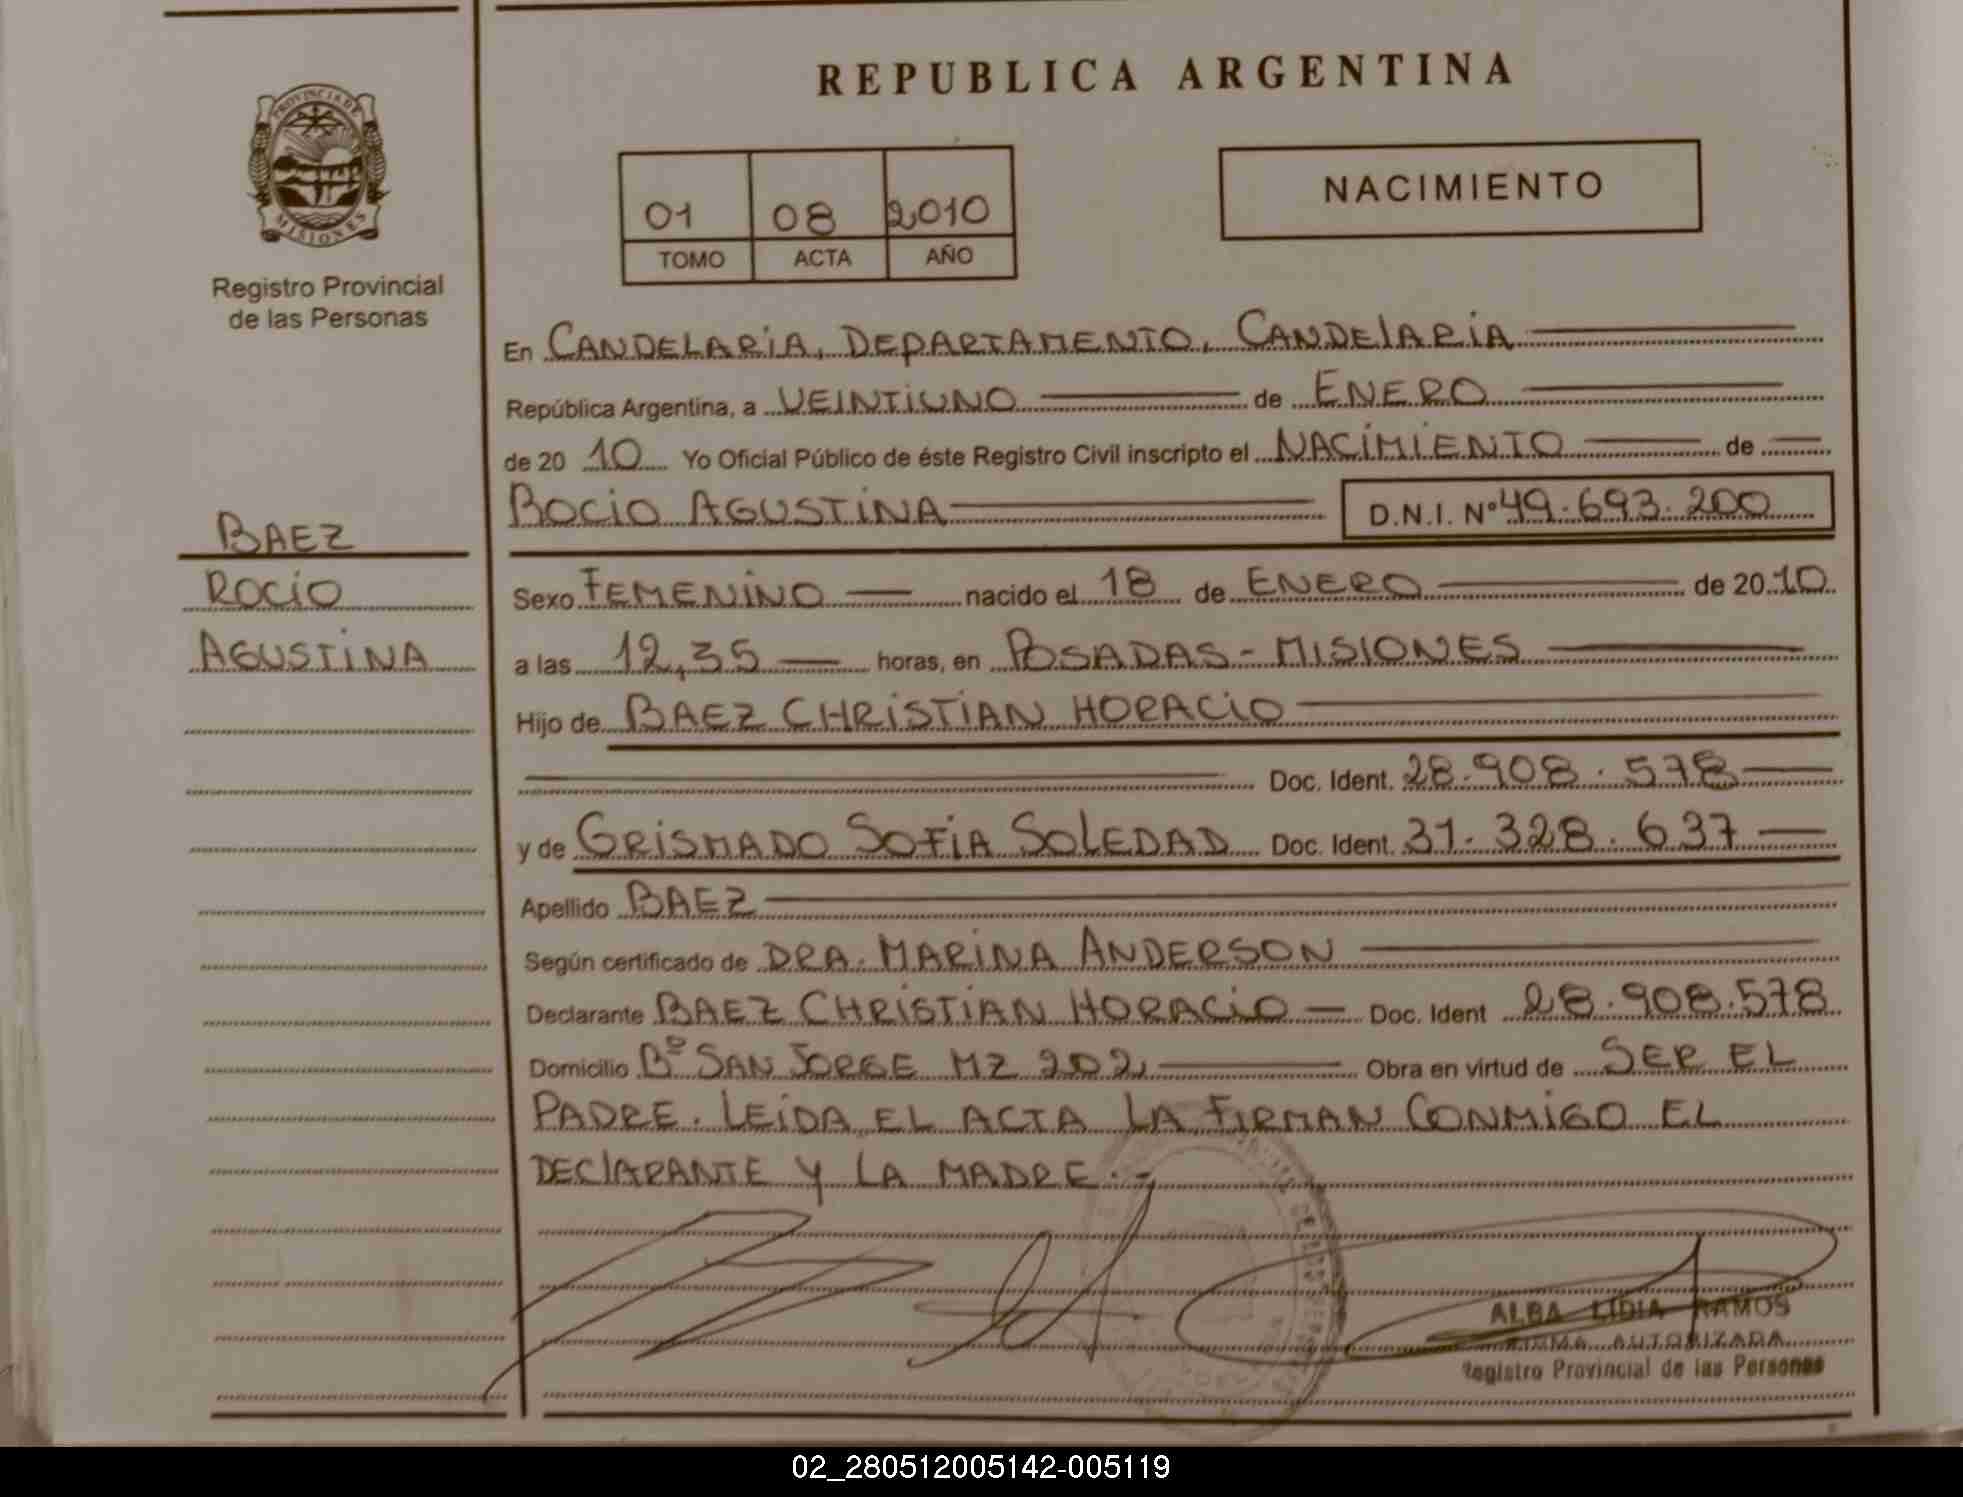 REPUBLICA ARGENTINA
PROVINCIA DE
MISIONES
Registro Provincial
de las Personas
01 08 2010
TOMO ACTA AÑO
NACIMIENTO
BAEZ
ROCIO
AGUSTINA
En CANDELARIA, DEPARTAMENTO, CANDELARIA
República Argentina, a VEINTIUNO de ENERO
de 20 10 Yo Oficial Público de éste Registro Civil inscripto el NACIMIENTO de
ROCIO AGUSTINA D.N.I. Nº 49.693.200
Sexo FEMENINO nacido el 18 de ENERO de 20 10
a las 12,35 horas, en POSADAS - MISIONES
Hijo de BAEZ CHRISTIAN HORACIO
Doc. Ident. 28.908.578
y de GRISMADO SOFIA SOLEDAD Doc. Ident. 31.328.637
Apellido BAEZ
Según certificado de DRA. MARINA ANDERSON
Declarante BAEZ CHRISTIAN HORACIO Doc. Ident 28.908.578
Domicilio Bº SAN JORGE MZ 202 Obra en virtud de SER EL
PADRE. LEIDA EL ACTA LA FIRMAN CONMIGO EL
DECLARANTE Y LA MADRE.-
ALBA LIDIA RAMOS
FIRMA AUTORIZADA
Registro Provincial de las Personas
02_280512005142-005119